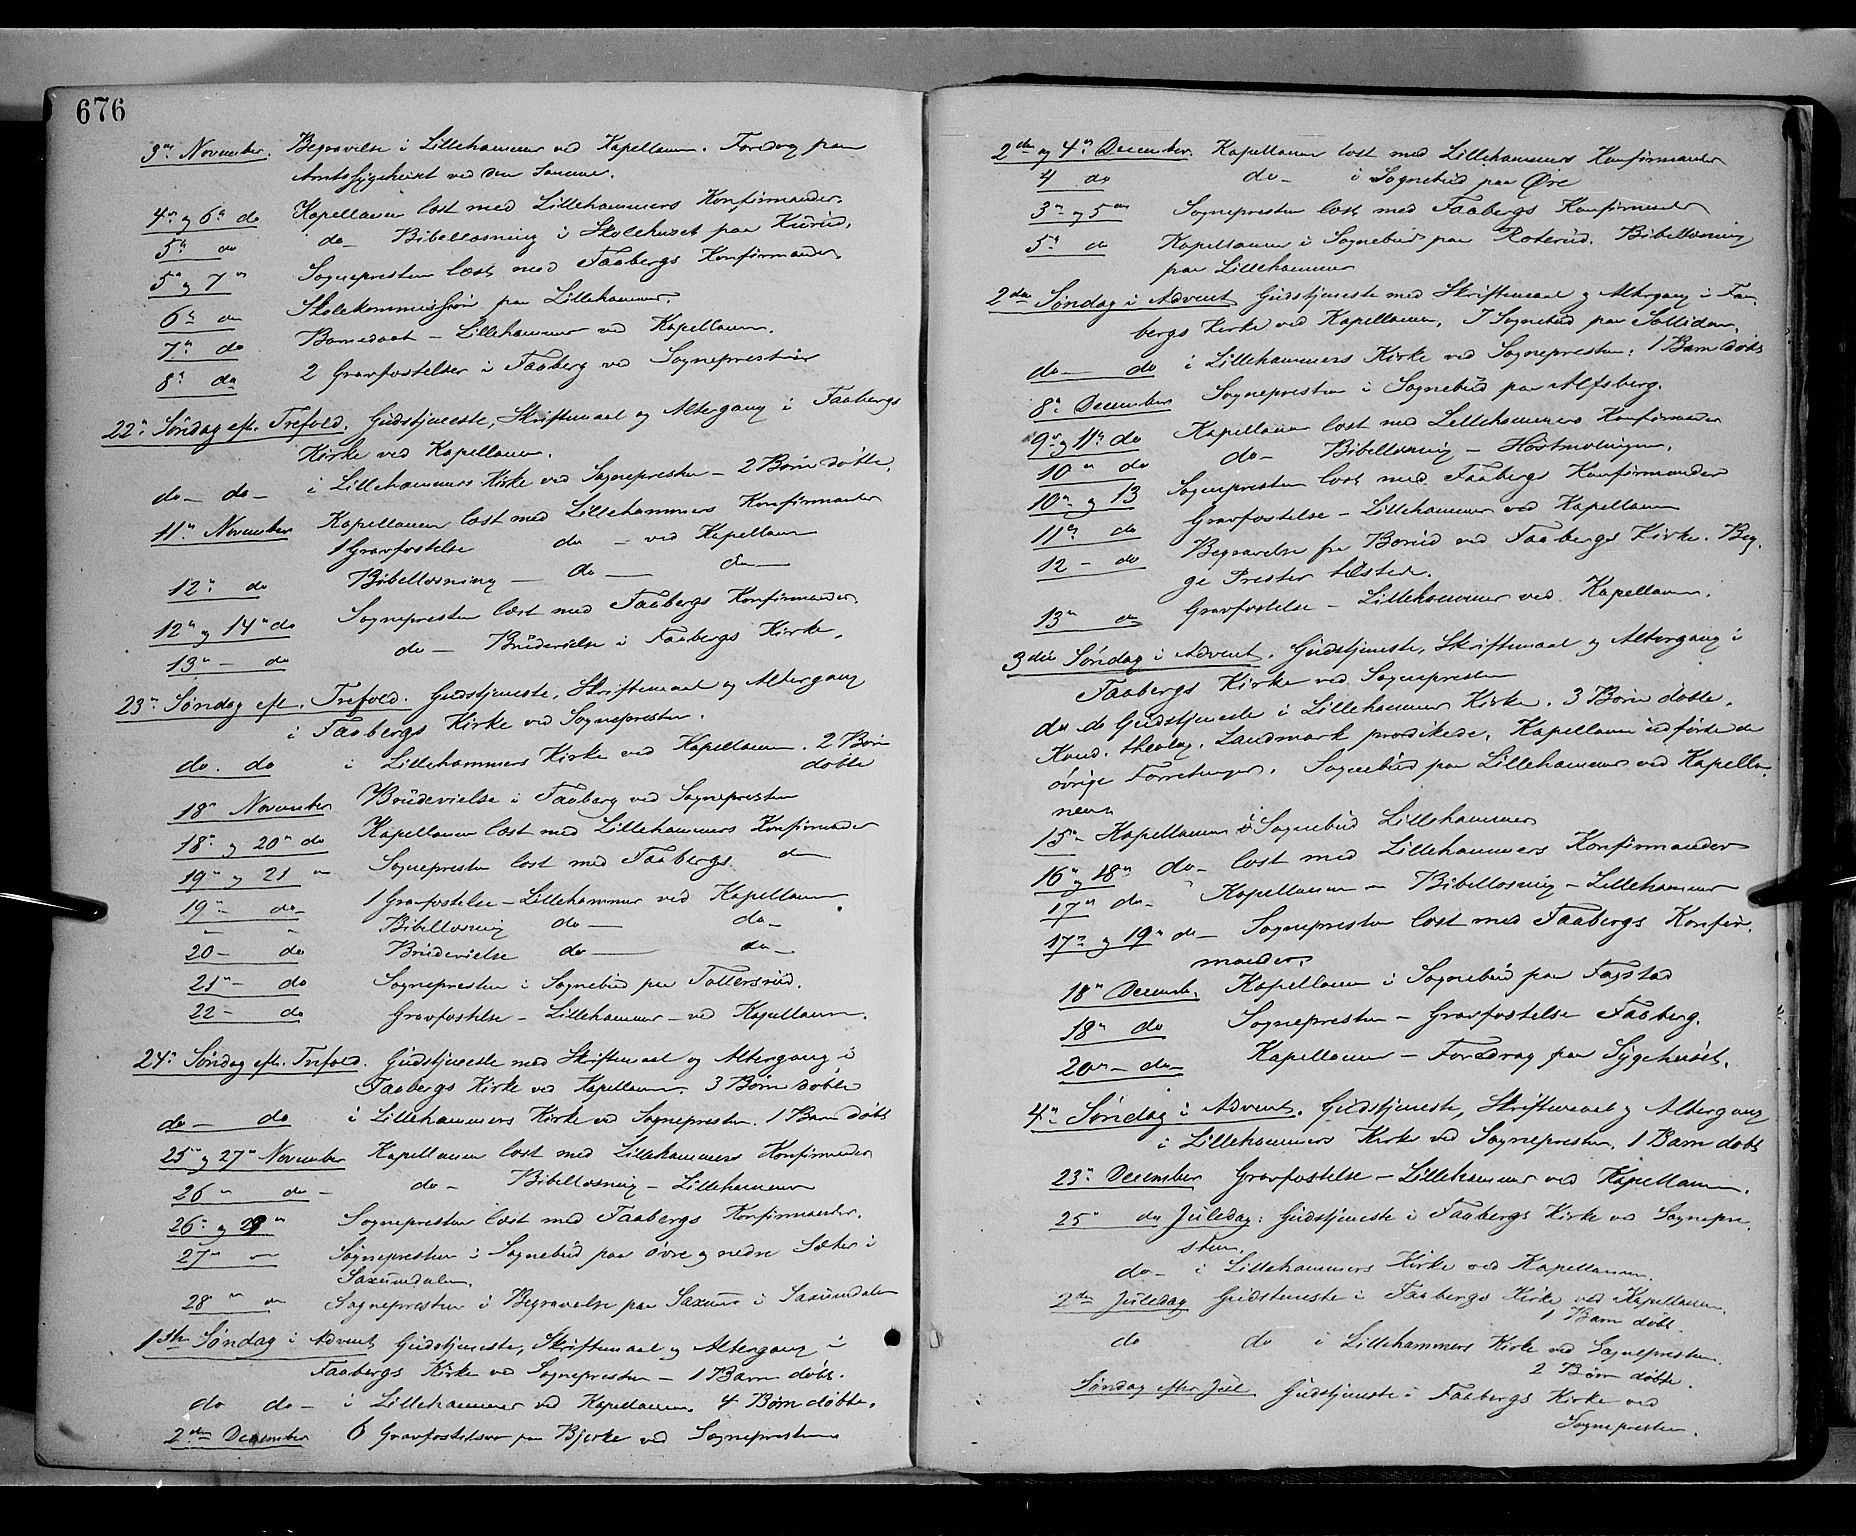 676
3die November. Begravelse i Lillehammer ved Kapellanen. Foredrag paa
Amtssygehuset ved den Samme.
4de og 6te do Kapellanen læst med Lillehammers Konfirmander.
5te do do – Bibellæsning i Skolehuset paa
5te og 7de Sognepresten læst med Faabergs Konfirmander.
6te do Skolekommission paa Lillehammer.
7de do Barnedaab – Lillehammer ved Kapellanen.
8de do 2 Gravfæstelser i Faaberg ved Sognepresten
22de Søndag eft. Trefold. Gudstjeneste, Skriftemaal og Altergang i Faabergs
Kirke ved Kapellanen.
do – do – i Lillehammers Kirke ved Sognepresten – 2 Børn døbte.
11te November Kapellanen læst med Lillehammers Konfirmander
1 Gravfæstelse do – ved Kapellanen
12te do Bibellæsning – do – do –
12te og 14de do Sognepresten læst med Faabergs Konfirmander.
13de – do do – Brudevielse i Faabergs Kirke.
23de Søndag eft. Trefold. Gudstjeneste, Skriftemaal og Altergang
i Faabergs Kirke ved Sognepresten.
do. do i Lillehammers Kirke ved Kapellanen. 2 Børn
døbte
18de November Brudevielse i Faaberg ved Sognepresten
18de og 20de do Kapellanen læst med Lillehammers Konfirmander
19de og 21 Sognepresten læst med Faabergs do
19de – do – 1 Gravfæstelse – Lillehammer ved Kapellanen
– – Bibellæsning do – do –
20 – do Brudevielse do – do –
21de – do Sognepresten i Sognebud paa Tollersrud.
22 – do Gravfæstelse – Lillehammer – ved Kapellanen.
24de Søndag eft. Trefold. Gudstjeneste med Skriftemaal og Altergang i
Faabergs Kirke ved Kapellanen. 3 Børn døbte
do – do i Lillehammers Kirke ved Sognepresten. 1 Barn døbt
25de og 27de November Kapellanen læst med Lillehammers Konfirmander
26de do – do – Bibellæsning – Lillehammer
26de og 28de Sognepresten læst med Faabergs Konfirmander.
27de – Sognepresten i Sognebud paa øvre og nedre Sæter i
Saxumdalen.
28de do Sognepresten i Begravelse paa Saxum i Saxumdalen
1ste Søndag i Advent Gudstjeneste, Skriftemaal og Altergang i
Faabergs Kirke ved Sognepresten – 1 Barn døbt.
do do – i Lillehammer ved Kapellanen. 4 Børn døbte.
2den December 6 Gravfæstelser paa Bjerke ved Sognepresten
2den og 4de December. Kapellanen læst med Lillehammers Konfirmander
4 do do – i Sognebud paa Øre
3die og 5te Sognepresten læst med Faabergs Konfirmander
5te do Kapellanen i Sognebud paa Roterud. Bibellæsning
paa Lillehammer
2den Søndag i Advent Gudstjeneste med Skriftemaal og Altergang i Faa-
bergs Kirke ved Kapellanen. I Sognebud paa Solliden.
do – do i Lillehammers Kirke ved Sognepresten: 1 Barn døbt
8de December Sognepresten i Sognebud paa Alfsberg.
9de og 11te do Kapellanen læst med Lillehammers Konfirmander
10de do do – Bibellæsning –
10de og 13 Sognepresten læst med Faabergs Konfirmander
11te do Gravfæstelse – Lillehammer ved Kapellanen
12 – do Begravelse fra Borud ved Faabergs Kirke. Beg-
ge Prester tilstede.
13de do Gravfæstelse – Lillehammer ved Kapellanen.
3die Søndag i Advent. Gudstjeneste, Skriftemaal og Altergang i
Faabergs Kirke ved Sognepresten
do do Gudstjeneste i Lillehammer Kirke. 3 Børn døbte.
Kand. theolog. Landmark prædikede. Kapellanen udførte de
øvrige Forretninger. Sognebud paa Lillehammer ved Kapella-
nen
15de Kapellanen i Sognebud Lillehammer
16de og 18de do – læst med Lillehammers Konfirmander
17de do – Kapellanen – Bibellæsning – Lillehammer
17de og 19de do – Sognepresten læst med Faabergs Konfir-
mander.
18de Decemb. Kapellanen i Sognebud paa Fagstad
18de do Sognepresten – Gravfæstelse Faaberg.
20de – do – Kapellanen – Foredrag paa Sygehuset.
4de Søndag i Advent. Gudstjeneste, Skriftemaal og Altergang
i Lillehammers Kirke ved Sognepresten. 1 Barn døbt
23de December Gravfæstelse – Lillehammer ved Kapellanen.
25de do Juledag: Gudstjeneste i Faabergs Kirke ved Sognepre-
sten.
do – i Lillehammers Kirke ved Kapellanen.
2den Juledag Gudstjeneste i Faabergs Kirke ved Kapellanen.
1 Barn døbt.
do do i Lillehammers Kirke ved Sognepresten.
2 Børn døbte.
Søndag efter Jul Gudstjeneste i Faabergs Kirke ved
Sognepresten.